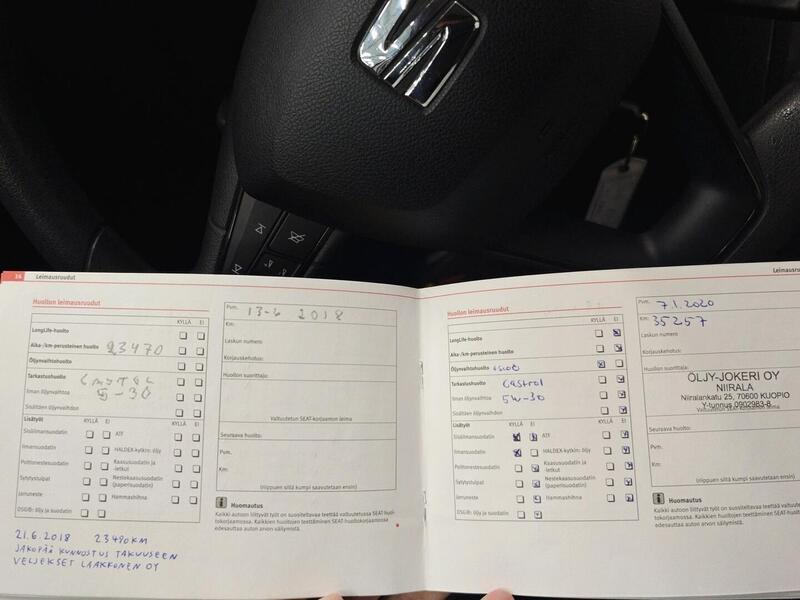 16 Leimausruudut
Huollon leimausruudut
KYLLÄ EI
LongLife-huolto
Aika-/km-perusteinen huolto 23470
Öljynvaihtohuolto
Tarkastushuolto
Ilman öljynvaihtoa 5-30
Sisältäen öljynvaihdon
Lisätyöt KYLLÄ EI KYLLÄ EI
Sisäilmansuodatin ATF
Ilmansuodatin HALDEX-kytkin: öljy
Polttonestesuodatin Kaasusuodatin ja -letkut
Sytytystulpat Nestekaasusuodatin (paperisuodatin)
Jarruneste Hammashihna
DSG®: öljy ja suodatin
21.6.2018 23490KM
JAKOPÄÄ KUNNOSTUS TAKUUSEEN
VELJEKSET LAAKKONEN OY
Pvm. 13-6 2018
Km:
Laskun numero
Korjauskehotus:
Huollon suorittaja:
Valtuutetun SEAT-korjaamon leima
Seuraava huolto:
Pvm.
Km:
(riippuen siitä kumpi saavutetaan ensin)
Huomautus
Kaikki autoon liittyvät työt on suositeltavaa teettää valtuutetussa SEAT-huol-
tokorjaamossa. Kaikkien huoltojen teettäminen SEAT-huoltokorjaamossa
edesauttaa auton arvon säilymistä.
Leimausru
Huollon leimausruudut
KYLLÄ EI
LongLife-huolto
Aika-/km-perusteinen huolto
Öljynvaihtohuolto
Tarkastushuolto Castrol
Ilman öljynvaihtoa 5W-30
Sisältäen öljynvaihdon
Lisätyöt KYLLÄ EI KYLLÄ EI
Sisäilmansuodatin ATF
Ilmansuodatin HALDEX-kytkin: öljy
Polttonestesuodatin Kaasusuodatin ja -letkut
Sytytystulpat Nestekaasusuodatin (paperisuodatin)
Jarruneste Hammashihna
DSG®: öljy ja suodatin
Pvm. 7.1.2020
Km: 35257
Laskun numero
Korjauskehotus:
Huollon suorittaja:
ÖLJY-JOKERI OY
NIIRALA
Niiralankatu 25, 70600 KUOPIO
Y-tunnus 0902983-8
Valtuutetun SEAT-korjaamon leima
Seuraava huolto:
Pvm.
Km:
(riippuen siitä kumpi saavutetaan ensin)
Huomautus
Kaikki autoon liittyvät työt on suositeltavaa teettää valtuutetussa SEAT-huol-
tokorjaamossa. Kaikkien huoltojen teettäminen SEAT-huoltokorjaamossa
edesauttaa auton arvon säilymistä.